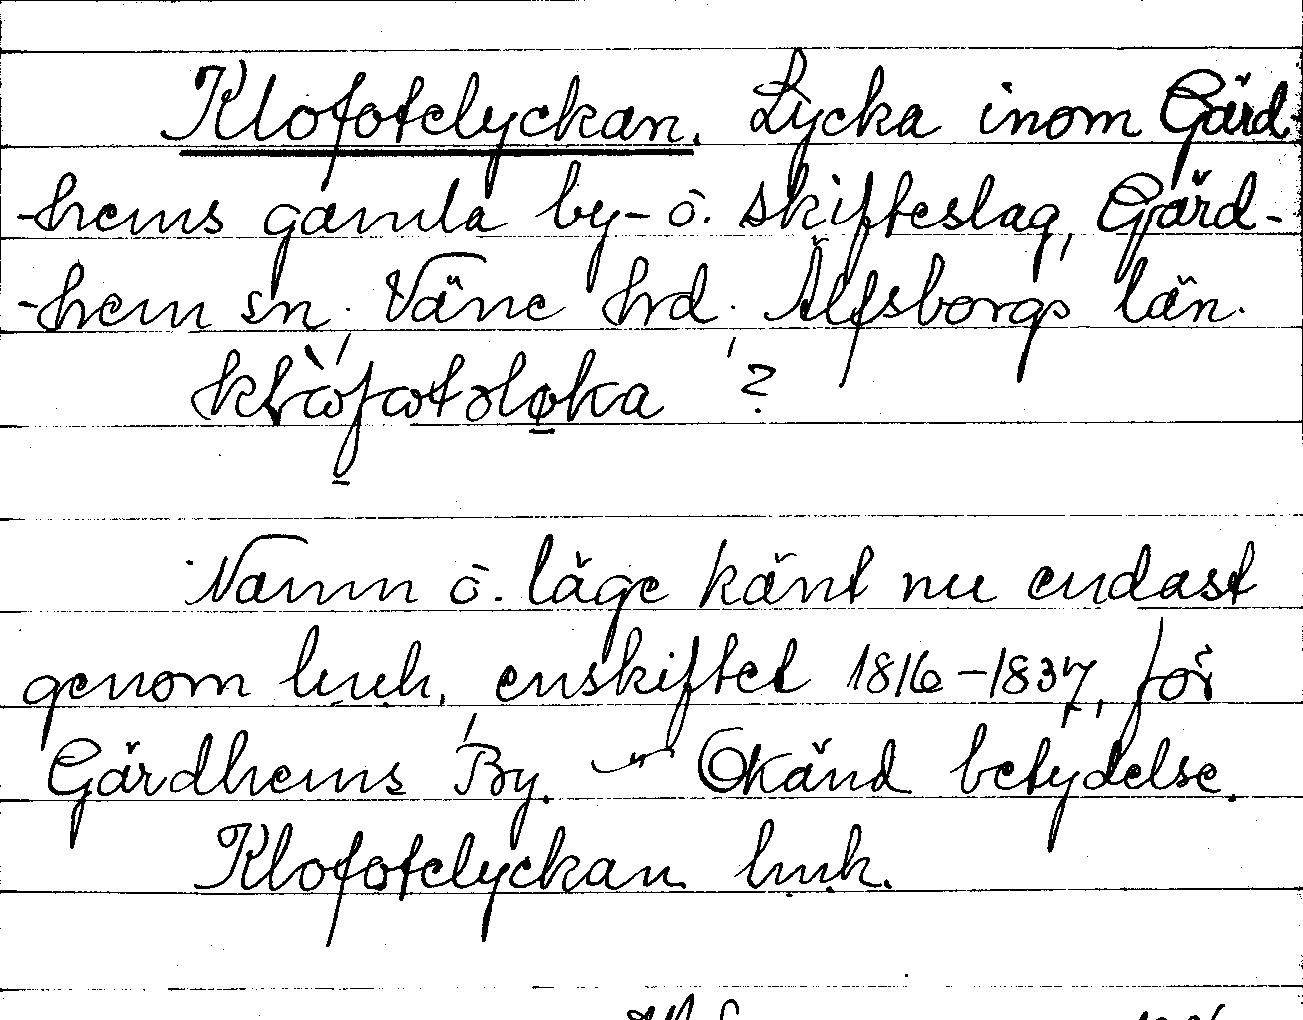 Klofotelyckan. Lycka inom Gärd-
-hems gamla by- o. skifteslag, Gärd-
-hem sn, Väne hrd, Älfsborgs län.
?
Namn o. läge känt nu endast
genom lmh, enskiftet 1816-1837, för
Gärdhems By. — Okänd betydelse.
Klofotelyckan lmh.